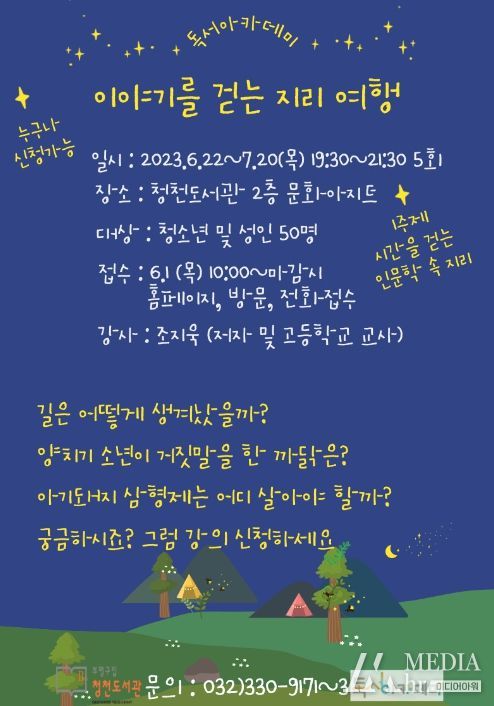 독서아카데미
이야기를 걷는 지리 여행
누구나
신청가능
일시 : 2023.6.22~7.20(목) 19:30~21:30 5회
장소 : 청천도서관 2층 문화아지트
대상 : 청소년 및 성인 50명
1주제
시간을 걷는
인문학 속 지리
접수 : 6.1 (목) 10:00~마감시
홈페이지, 방문, 전화접수
강사 : 조지욱 (저자 및 고등학교 교사)
길은 어떻게 생겨났을까?
양치기 소년이 거짓말을 한 까닭은?
아기돼지 삼형제는 어디 살아야 할까?
궁금하시죠? 그럼 강의 신청하세요
부평구립
청천도서관
문의 : 032)330-9171~3
MEDIA
hr
미디어아워